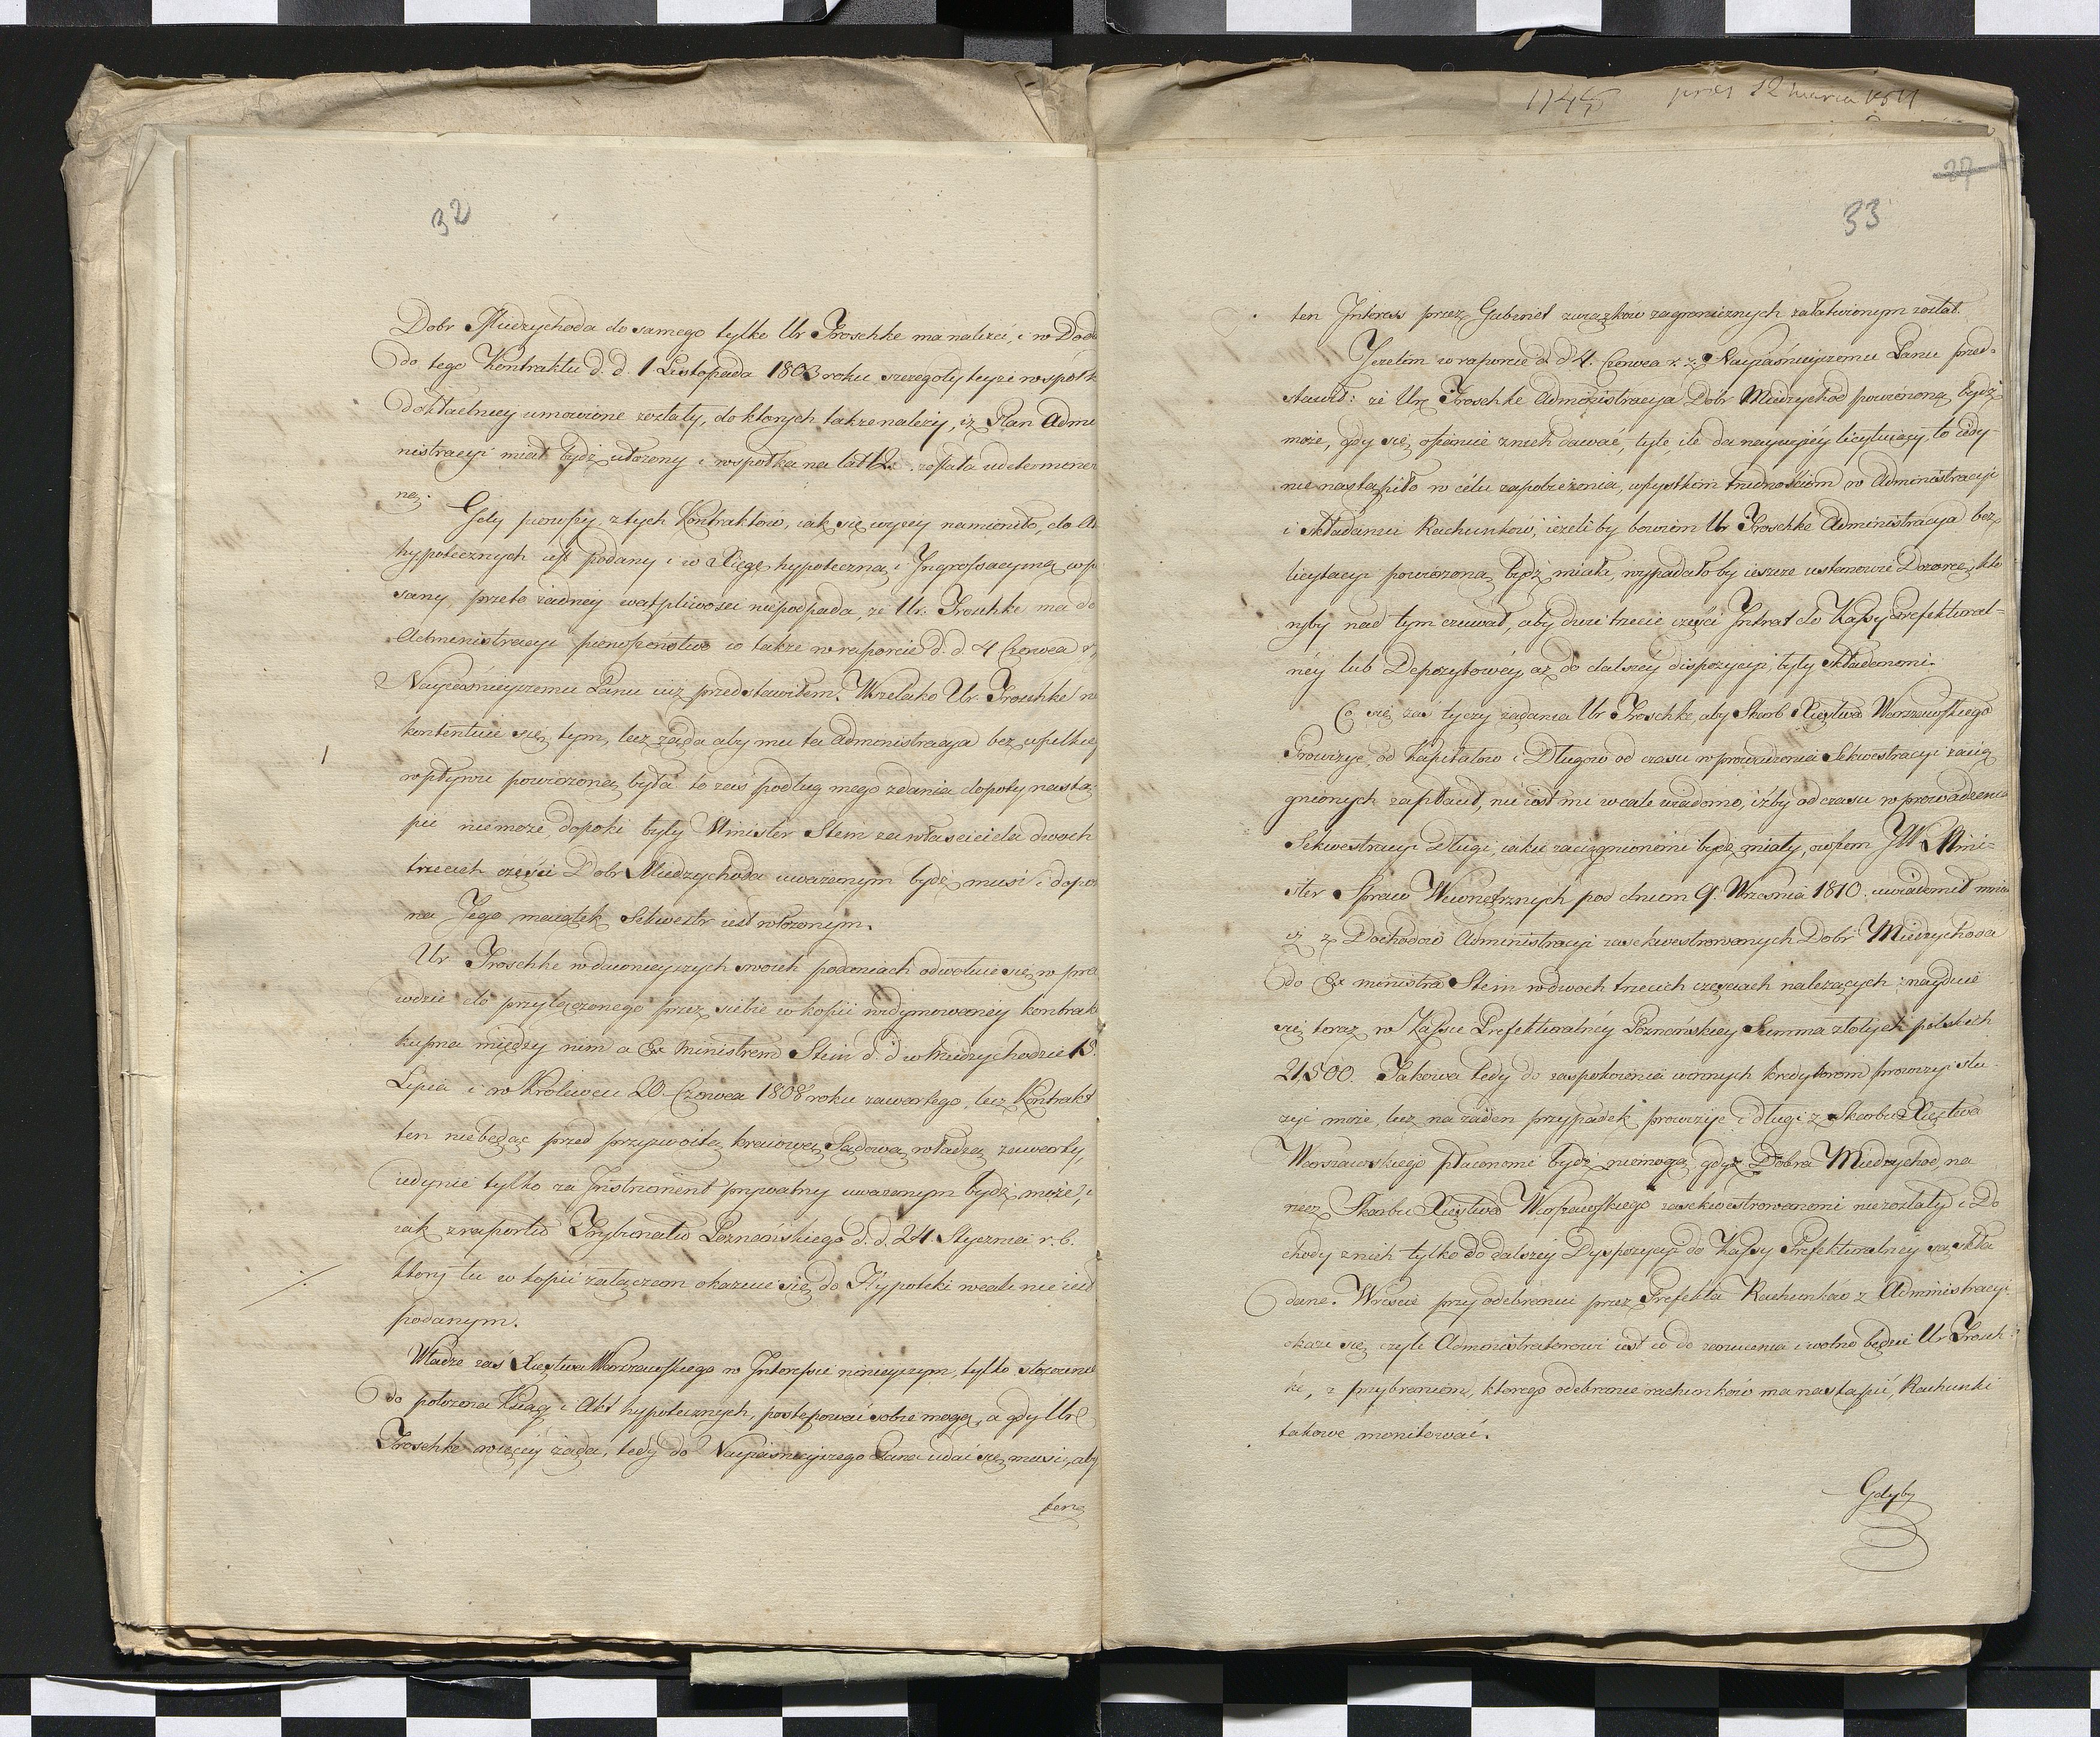 32
Dobr Miedzychoda do samego tylko Ur Troschke ma należeć, i w Dod
do tego Kontraktu d. d. 1 Listopada 1803 roku szczegoły teyże wspołk
dokładniey umowione zostały, do ktorych takze należy, iż Plan Admi
nistracyi miał bydź ułożony i wspołka na lat 12. została udeterminow
ną.
Gdy pierwszy z tych Kontraktów, iak się wyżey namieniło, do A
hypotecznych iest podany i w Xięgę hypoteczną i Ingrossacyiną wp
sany, przeto żadney wątpliwosci niepodpada, że Ur. Troschke ma do
Administracyi pierwszeństwo co także w raporcie d. d 4 Czerwca r.
Nayiaśnieyszemu Panu iuż przedstawiłem. Wszelako Ur. Troschke n
kontentuie się tym, lecz żąda aby mu ta Administracya bez wszelkiey
wpływu powierzoną była to zaś podług mego zdania dopoty nastą
pić niemoże, dopoki były Minister Stein za własciciela dwoch
trzecich części Dobr Miedzychoda uważanym bydź musi i dopo
na Jego maiątek Sekwestr iest włożonym.
Ur Troschke w dawnieyszych swoich podaniach odwołuie się w pra
wdzie do przyłączonego przez siebie w kopii widymowaney kontrak
kupna między nim a Ex Ministrem Stein d. d w Miedzychodzie 18.
Lipca i w Krolewcu 20 Czerwca 1808 roku zawartego, lecz Kontrakt
ten niebędąc przed przyzwoitą kraiową Sądową władzą zawarty,
iedynie tylko za Instrument prywatny uważanym bydź może, i
iak z raportu Trybunału Poznańskiego d. d. 24. Stycznia r. b.
ktory tu w kopii załączam okazuie się do Hypoteki wcale nie iest
podanym.
Władze zaś Xięstwa Warszawskiego w Interessie ninieyszym, tylko stosownie
do położenia Xiąg i Akt hypotecznych, postępować sobie mogą, a gdy Ur
Troschke więcey żąda, tedy do Nayiaśnieyszego Pana udać się musi, aby
ten
1145 prs 12 marca 1811
27
33
ten Interess przez Gabinet związków zagranicznych załatwionym został.
Jeżelim w raporcie d. d 4. Czerwca r. z. Nayiaśnieyszemu Panu przed-
stawił: że Ur. Troschke Administracya Dobr Miedzychod powierzoną bydź
może, gdy się ofiaruie z nich dawać, tyle, ile da naywięcéy licytuiący, to iedy-
nie nastąpiło w célu zapobieżenia, wszystkim trudnościom w Administracyi
i składaniu Rachunków, ieżeli by bowiem Ur Troschke Administracya bez
licytacyi powierzoną bydź miała, wypadało by ieszcze ustanowić Dozorcę, któ
ryby nad tym czuwał, aby dwie trzecie części Intrat do Kassy Prefektural-
néy lub Depozytowéy aż do dalszéy dispozycyi, były składanemi.
Co się zaś tyczy żądania Ur Troschke, aby Skarb Xięstwa Warszawskiego
Prowizye, od Kapitałow i Długow od czasu wprowadzenia Sekwestracyi zacią
gnionych zapłacił, nie iest mi wcale wiadomo, iżby od czasu wprowadzenia
Sekwestracyi Długi, iakie zaciągnionemi bydź miały, owszem JW. Mini-
ster Spraw Wewnętrznych pod dniem 9. Września 1810. uwiadomił mnie
iż z Dochodow Administracyi zasekwestrowanych Dobr Miedzychoda
do Ex ministra Stein w dwoch trzecich częściach należących znayduie
się teraz w Kassie Prefekturalnéy Poznańskiey Summa złotych polskich
21,500. Takowa tedy do zaspokoienia wornych kredytorom prowizyi słu-
żyć może, lecz na żaden przypadek prowizye i długi z Skarbu Xięstwa
Warszawskiego płaconemi bydź niemogą, gdyż Dobra Miedzychod, na
rzecz Skarbu Xięstwa Warszawskiego zasekwestrowanemi niezostały i Do
chody z nich tylko do dalszey Dyspozycyi do Kassy Prefekturalney są skła
dane. Wreście przy odebraniu przez Prefekta Rachunków z Administracyi
okaże się, czyli Administratorowi iest co do zarzucenia i wolno będzie Ur Trosch-
ke, z przybraniem, ktorego odebranie rachunków ma nastąpić, Rachunki
takowe monitować.
Gdyby